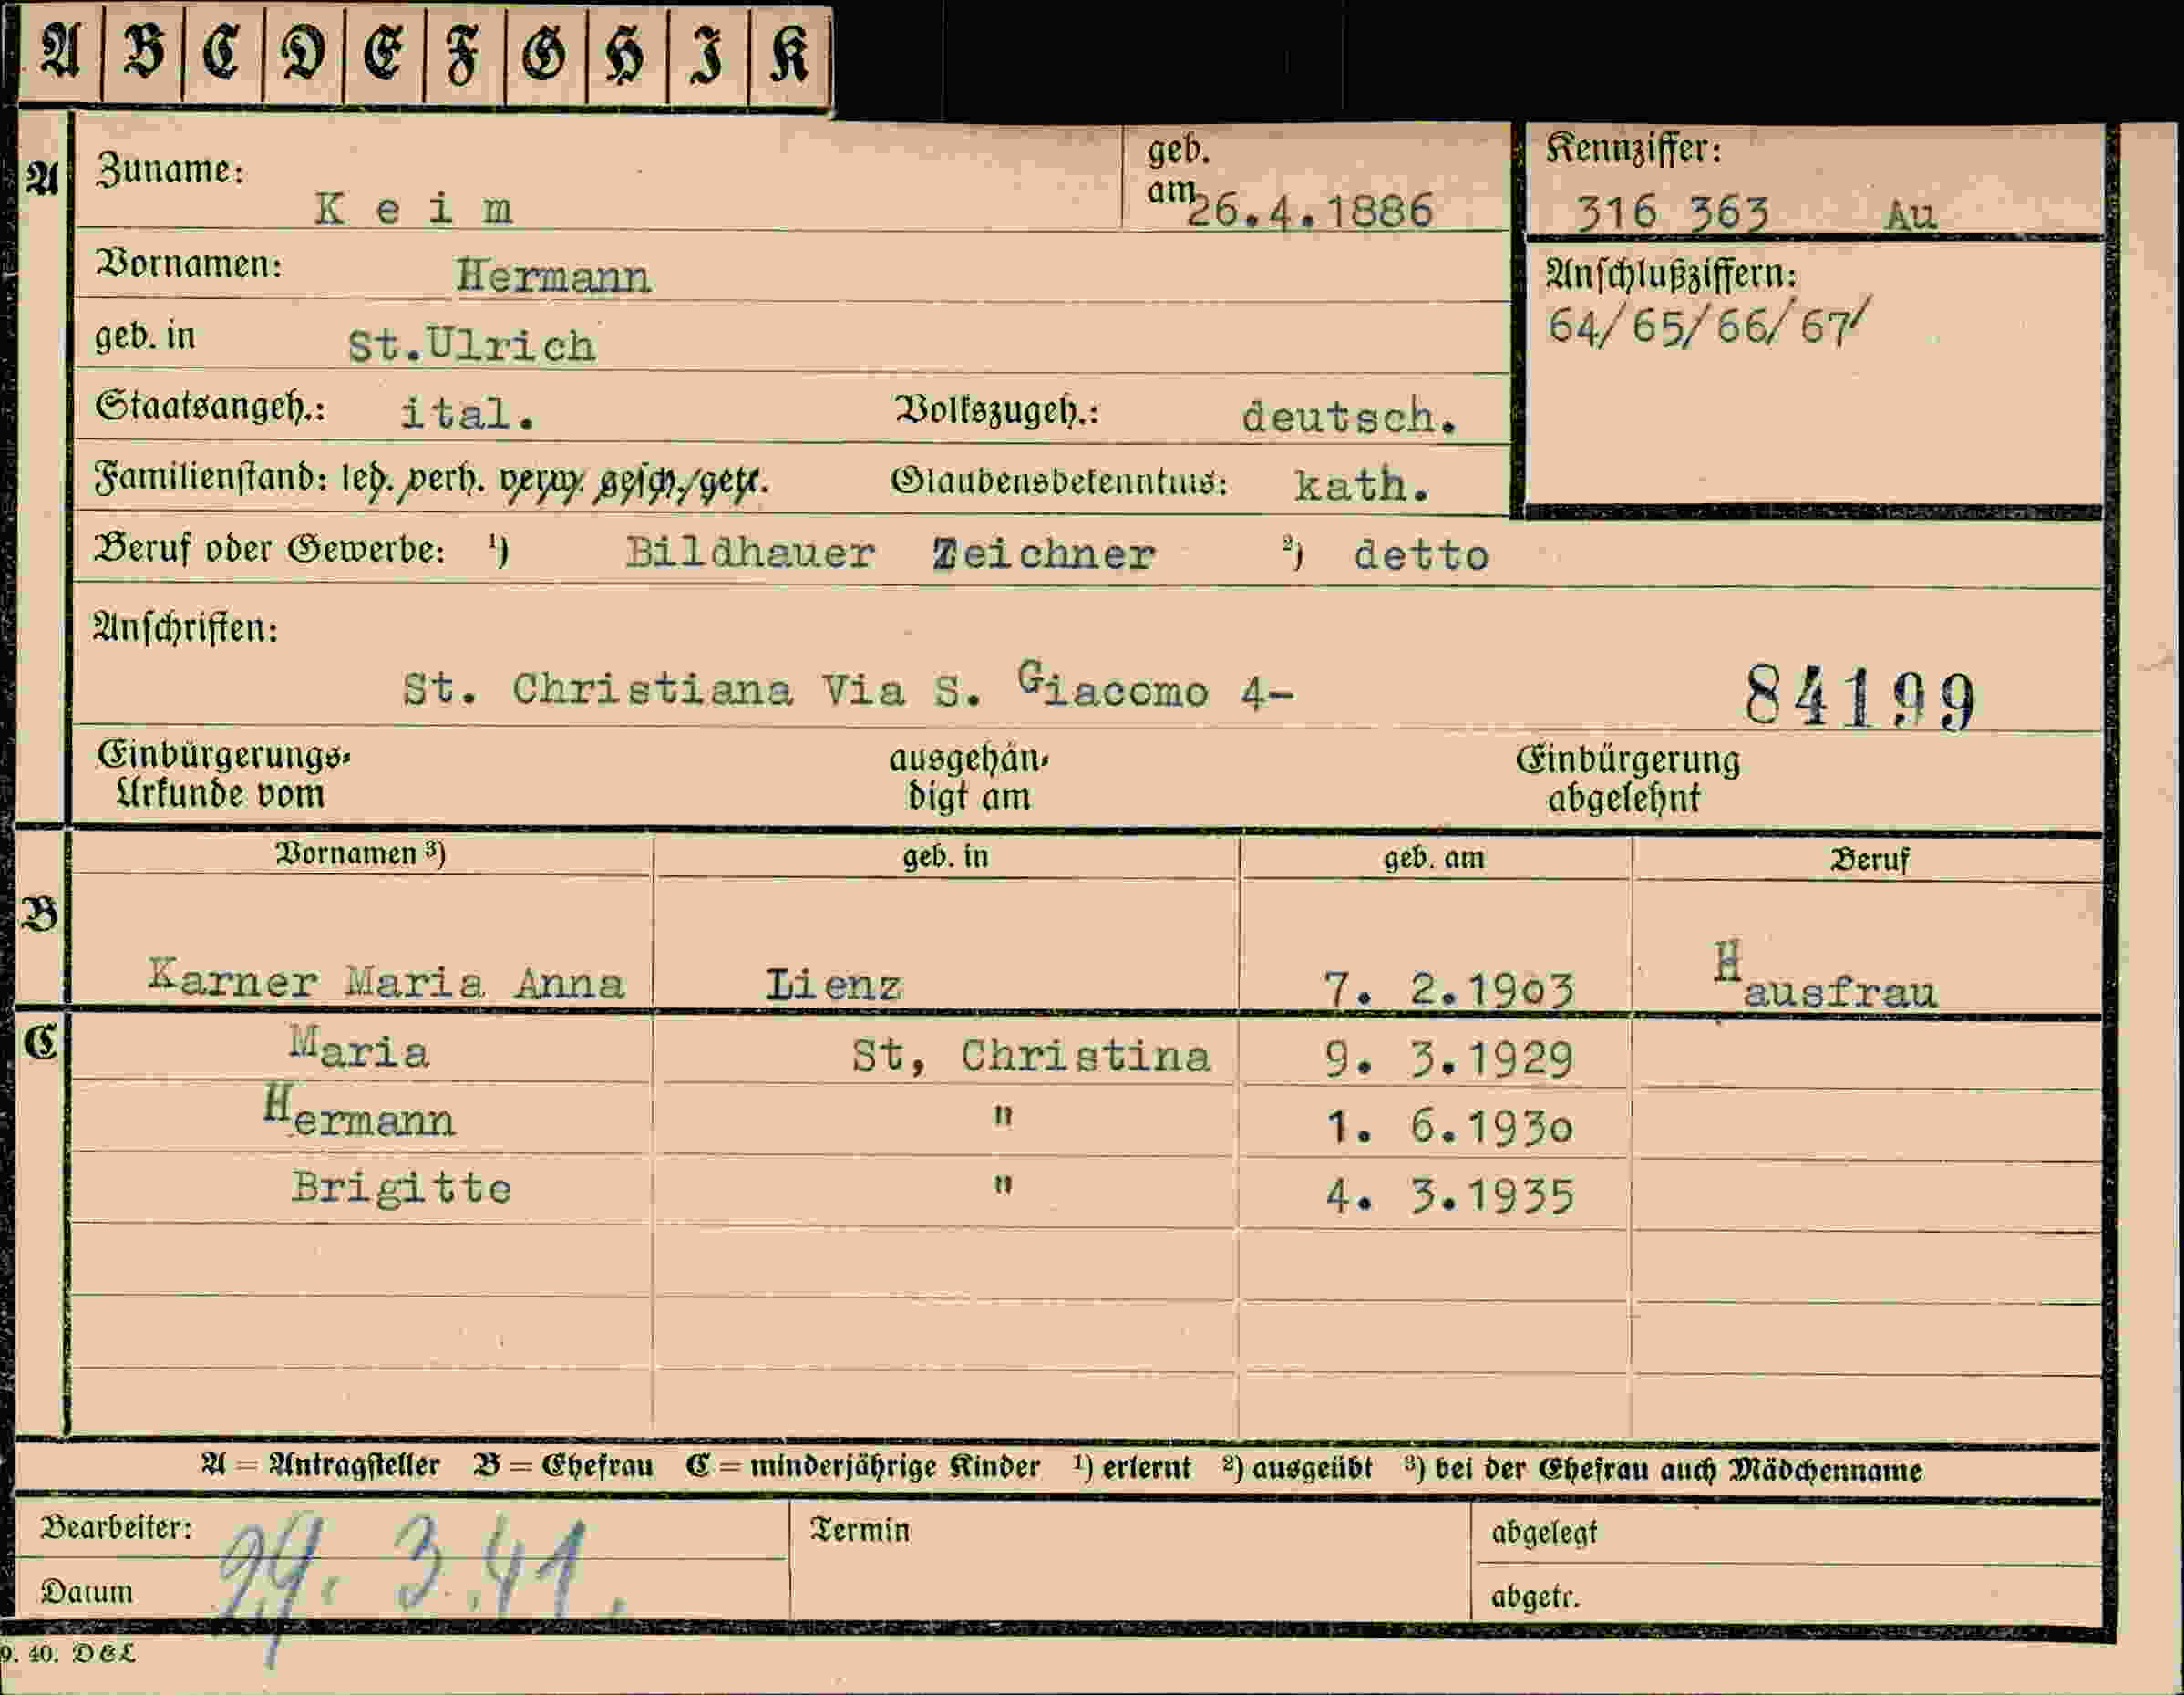 A B C D E F G H I K
A Zuname: Keim geb. am 26.4.1886 Kennziffer: 316 363 Au
Vornamen: Hermann Anschlußziffern:
64/65/66/67/
geb. in St.Ulrich
Staatsangeh.: ital. Volkszugeh.: deutsch.
Familienstand: led. verh. verw. gesch. getr. Glaubensbekenntnis: kath.
Beruf oder Gewerbe: ¹) Bildhauer Zeichner ²) detto
Anschriften:
St. Christiana Via S. Giacomo 4- 84199
Einbürgerungs- ausgehän- Einbürgerung
Urkunde vom digt am abgelehnt
Vornamen ³) geb. in geb. am Beruf
B
Karner Maria Anna Lienz 7. 2.1903 Hausfrau
C Maria St, Christina 9. 3.1929
Hermann " 1. 6.1930
Brigitte " 4. 3.1935
A = Antragsteller B = Ehefrau C = minderjährige Kinder ¹) erlernt ²) ausgeübt ³) bei der Ehefrau auch Mädchenname
Bearbeiter: Termin abgelegt
29. 3.41.
Datum abgetr.
9. 40. D&L